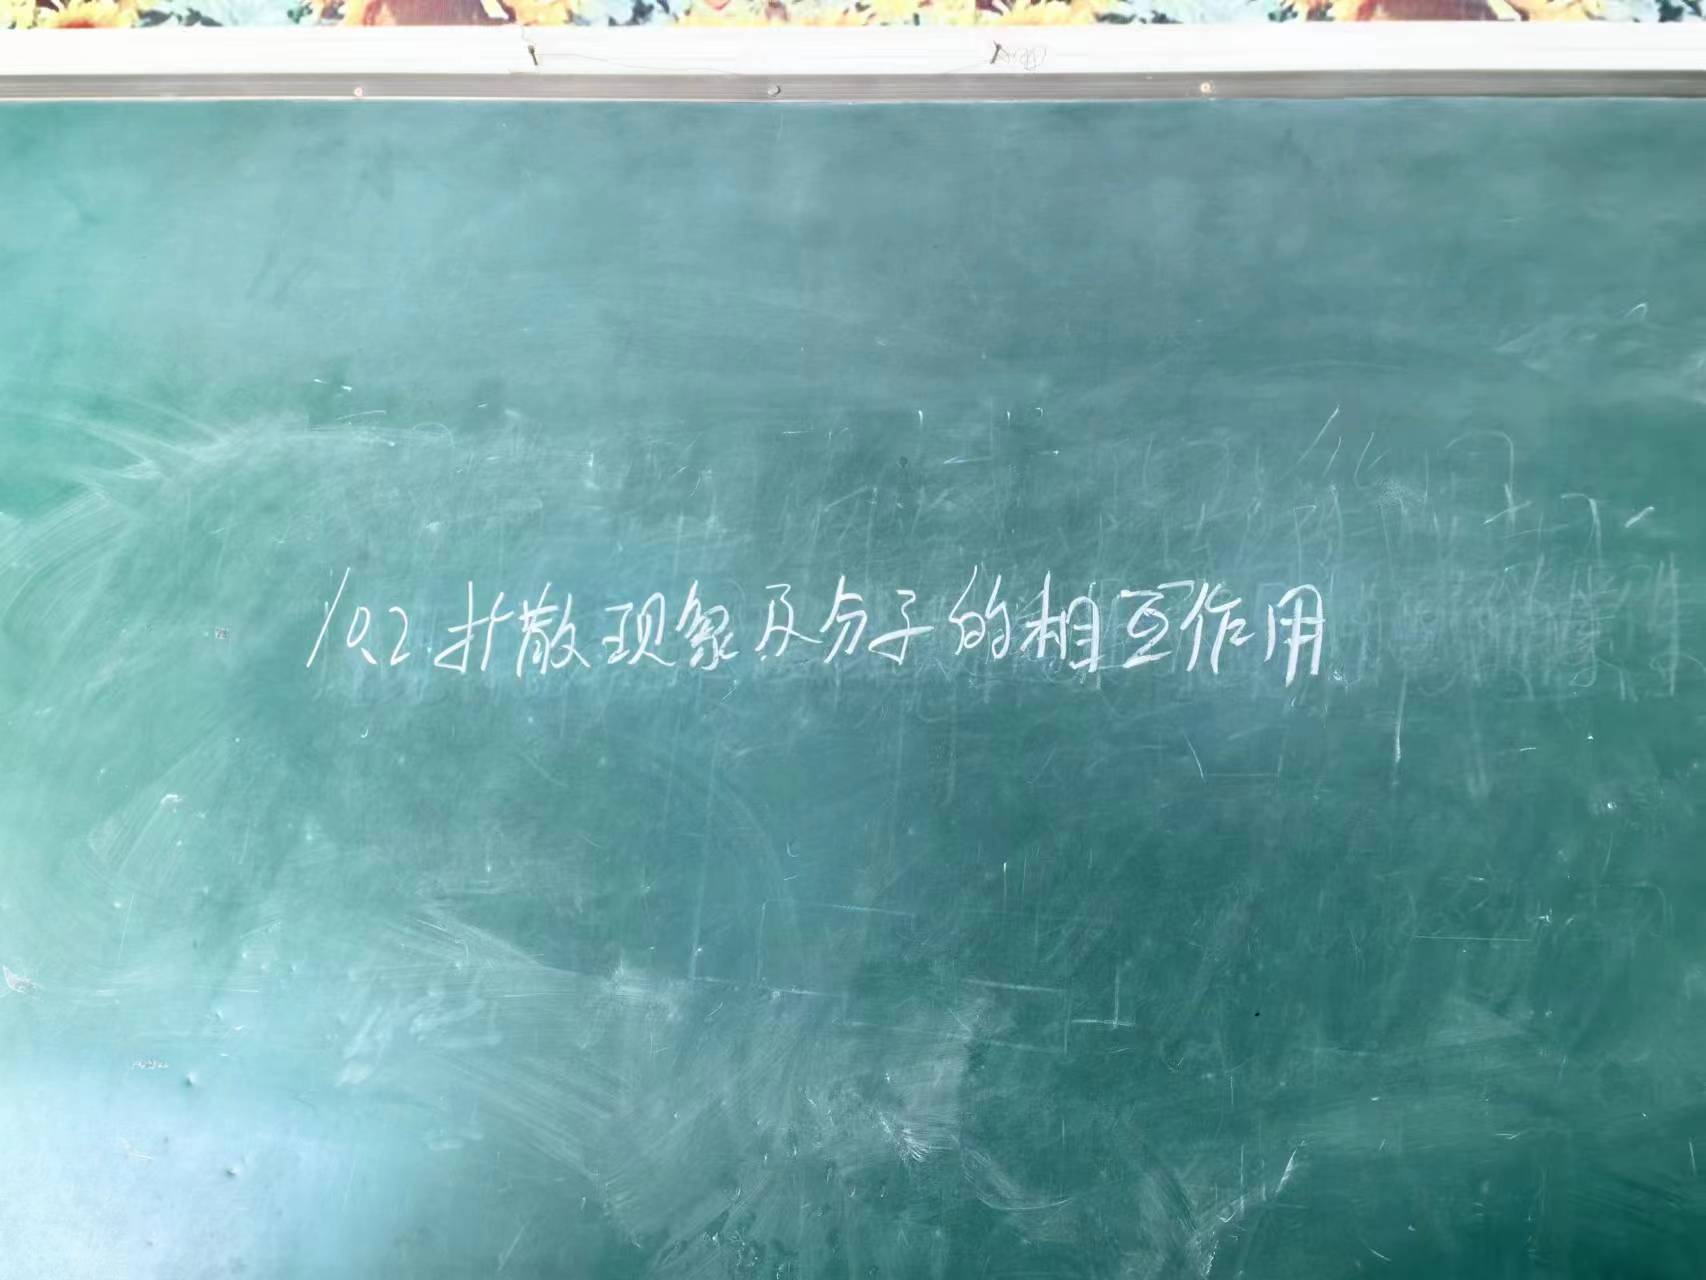 10.2 扩散现象及分子的相互作用